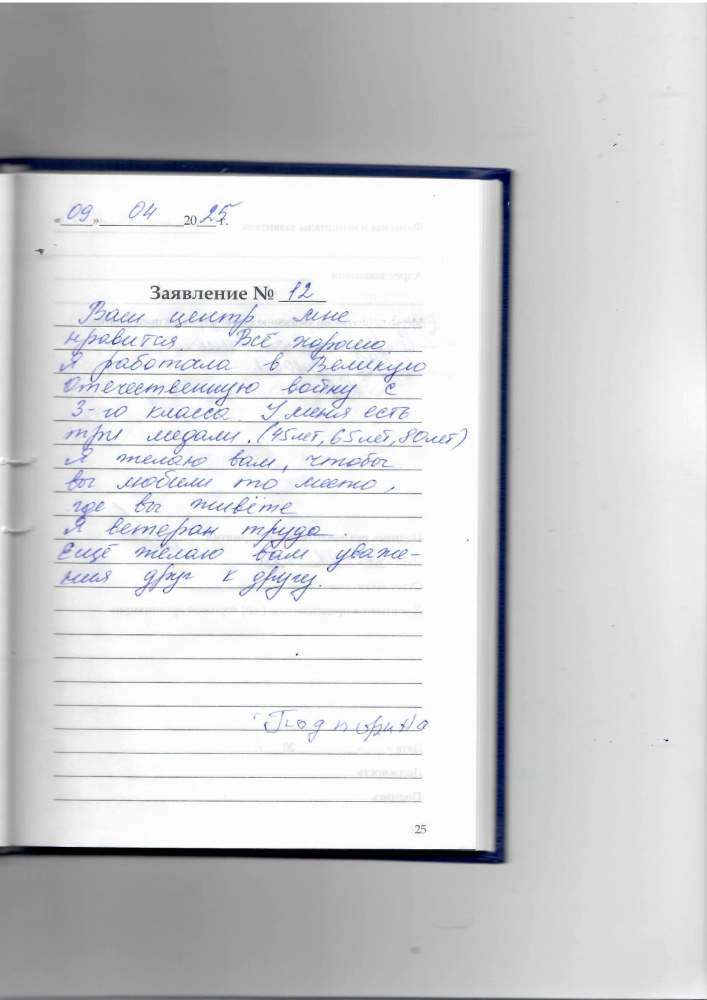 «09» 04 2025 г.
Заявление № 12
Ваш центр мне
нравится. Всё хорошо.
Я работала в Великую
Отечественную войну с
3-го класса. У меня есть
три медали. (45 лет, 65 лет, 80 лет)
Я желаю вам, чтобы
вы любили то место,
где вы живёте
Я ветеран труда.
Ещё желаю вам уваже-
ния друг к другу.
Подпорина
25